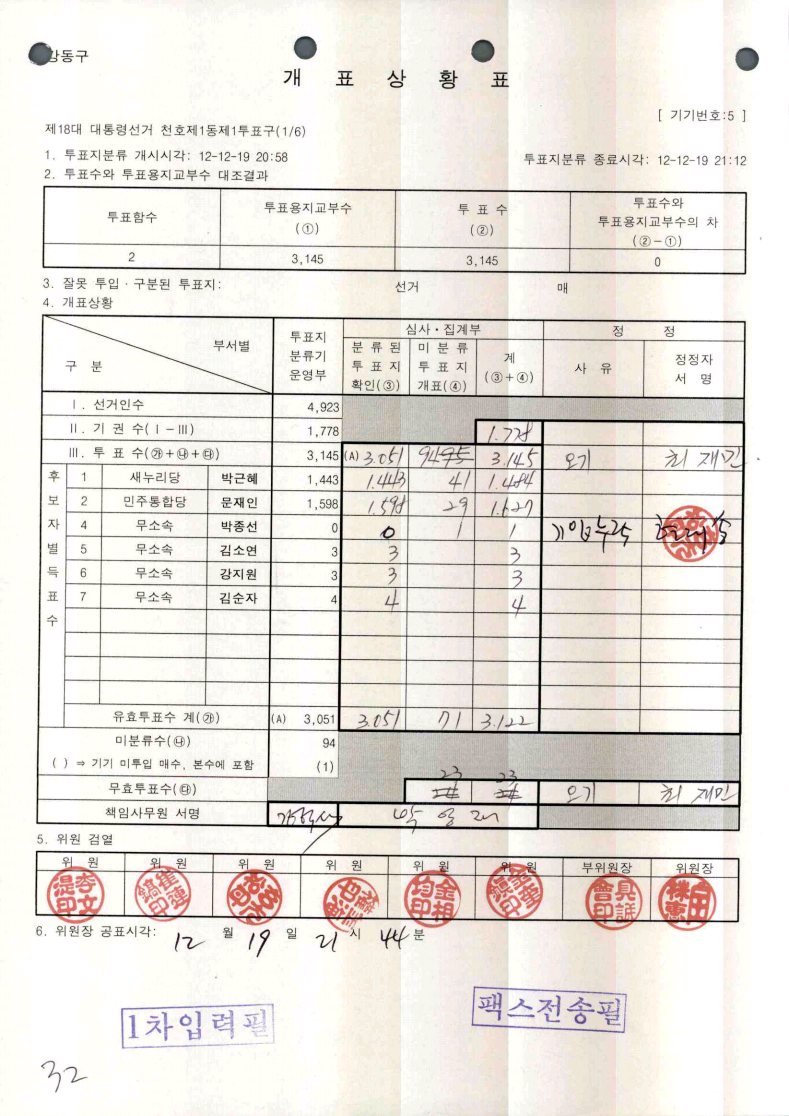 강동구
개 표 상 황 표
[ 기기번호:5 ]
제18대 대통령선거 천호제1동제1투표구(1/6)
1. 투표지분류 개시시각: 12-12-19 20:58
투표지분류 종료시각: 12-12-19 21:12
2. 투표수와 투표용지교부수 대조결과
투표함수 투표용지교부수 (①) 투 표 수 (②) 투표수와 투표용지교부수의 차 (②-①)
2 3,145 3,145 0
3. 잘못 투입ㆍ구분된 투표지: 선거 매
4. 개표상황
구 분 부서별 투표지 분류기 운영부 심사ㆍ집계부 정 정
분 류 된 투 표 지 확인(③) 미 분 류 투 표 지 개표(④) 계 (③+④) 사 유 정정자 서 명
Ⅰ. 선거인수 4,923
Ⅱ. 기 권 수(Ⅰ-Ⅲ) 1,778 1.778
Ⅲ. 투 표 수(㉮+㉯+㉰) 3,145 (A) 3.051 3.145 오기 최재민
후보자별득표수
1 새누리당 박근혜 1,443 1.443 41 1.484
2 민주통합당 문재인 1,598 1.598 29 1.627
4 무소속 박종선 0 0 1 1 기입누락
5 무소속 김소연 3 3 3
6 무소속 강지원 3 3 3
7 무소속 김순자 4 4 4
유효투표수 계(㉮) (A) 3,051 3.051 71 3.122
미분류수(㉯) 94
( ) ⇒ 기기 미투입 매수, 본수에 포함 (1)
무효투표수(㉰) 23 23 오기 최재민
책임사무원 서명
5. 위원 검열
위 원 위 원 위 원 위 원 위 원 위 원 부위원장 위원장
6. 위원장 공표시각: 12 월 19 일 21 시 44 분
1차입력필
팩스전송필
32